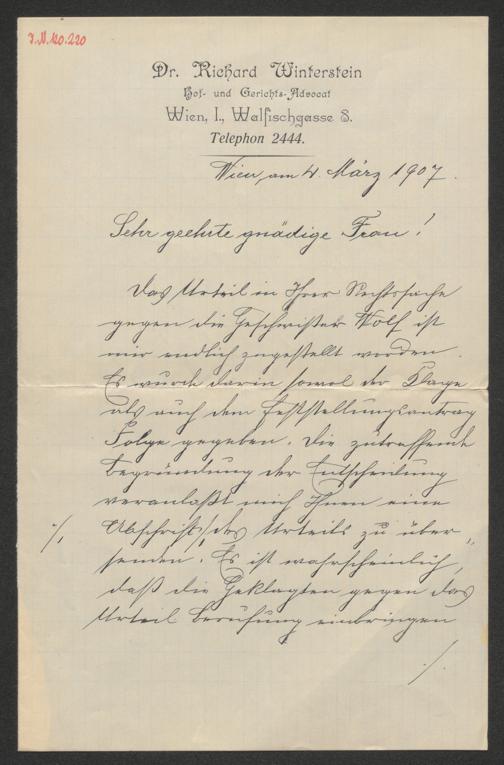 J.N. 120.220
Dr. Richard Winterstein
Hof- und Gerichts-Advocat
Wien, I., Walfischgasse 8.
Telephon 2444.
Wien, am 4. März 1907.
Sehr geehrte gnädige Frau!
Das Urteil in Ihrer Rechtssache
gegen die Geschwister Wolf ist
mir endlich zugestellt worden.
Es wurde darin sowol der Klage
als auch dem Feststellungsantrag
Folge gegeben. Die zutreffende
Begründung der Entscheidung
veranlaßt mich Ihnen eine
./. Abschrift ./. des Urteils zu über-
senden. Es ist wahrscheinlich,
daß die Geklagten gegen das
Urteil Berufung einbringen
./.